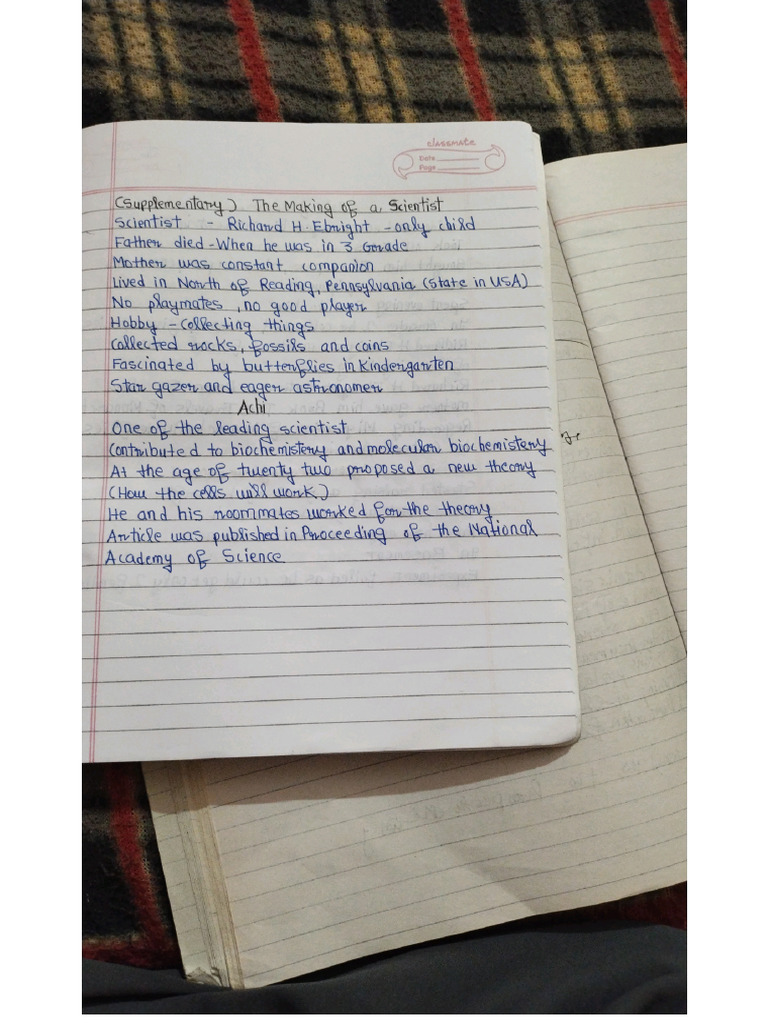 classmate
Date
Page
(Supplementary) The Making of a Scientist
Scientist - Richard H. Ebright - only child
Father died - When he was in 3 Grade
Mother was constant companion
Lived in North of Reading, Pennsylvania (State in USA)
No playmates, no good player
Hobby - Collecting things
Collected rocks, fossils and coins
Fascinated by butterflies in kindergarten
Star gazer and eager astronomer
Achi
One of the leading scientist
Contributed to biochemistery and molecular biochemistery
At the age of twenty two proposed a new theory
(How the cells will work)
He and his roommates worked for the theory
Article was published in Proceeding of the National
Academy of Science